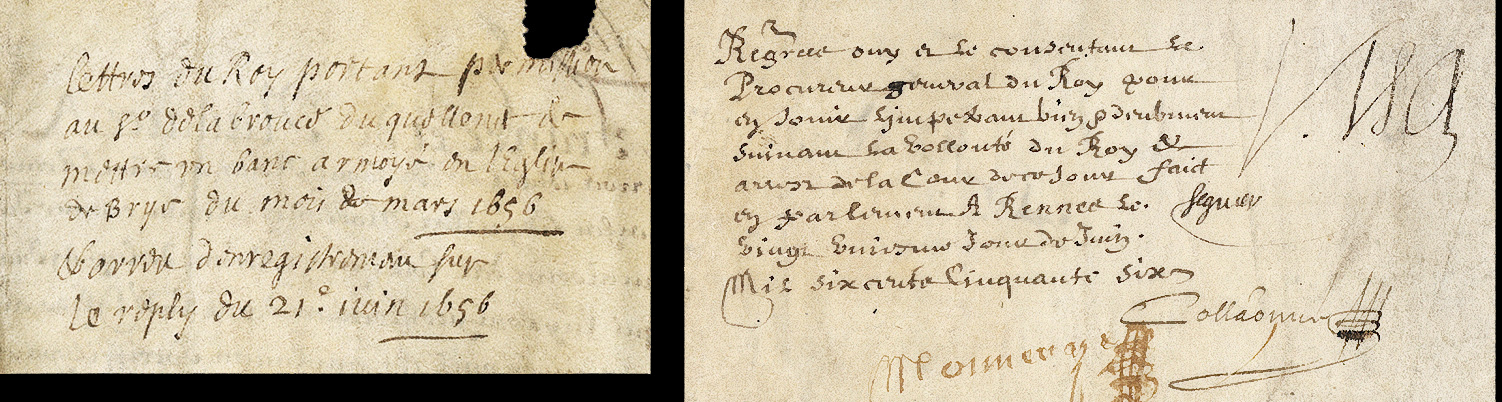 lettres du Roy portant permission
au sr delabrouce du quellenec de
mettre un banc armoyé en l'Eglise
de Brye du mois de mars 1656
& arrest d'enregistremant sur
le reply du 21e iuin 1656
Regrée ouy et le consentant le
Procureur general du Roy pour
en Jouir L'impetrant bien & deubment
suivant la vollonté du Roy &
arrest de la Cour de ce Jour faict
en parlement A Rennes le
vingt uniesme Jour de Juin
Mil six cents Cinquante six
Visa
Seguier
Monneraye